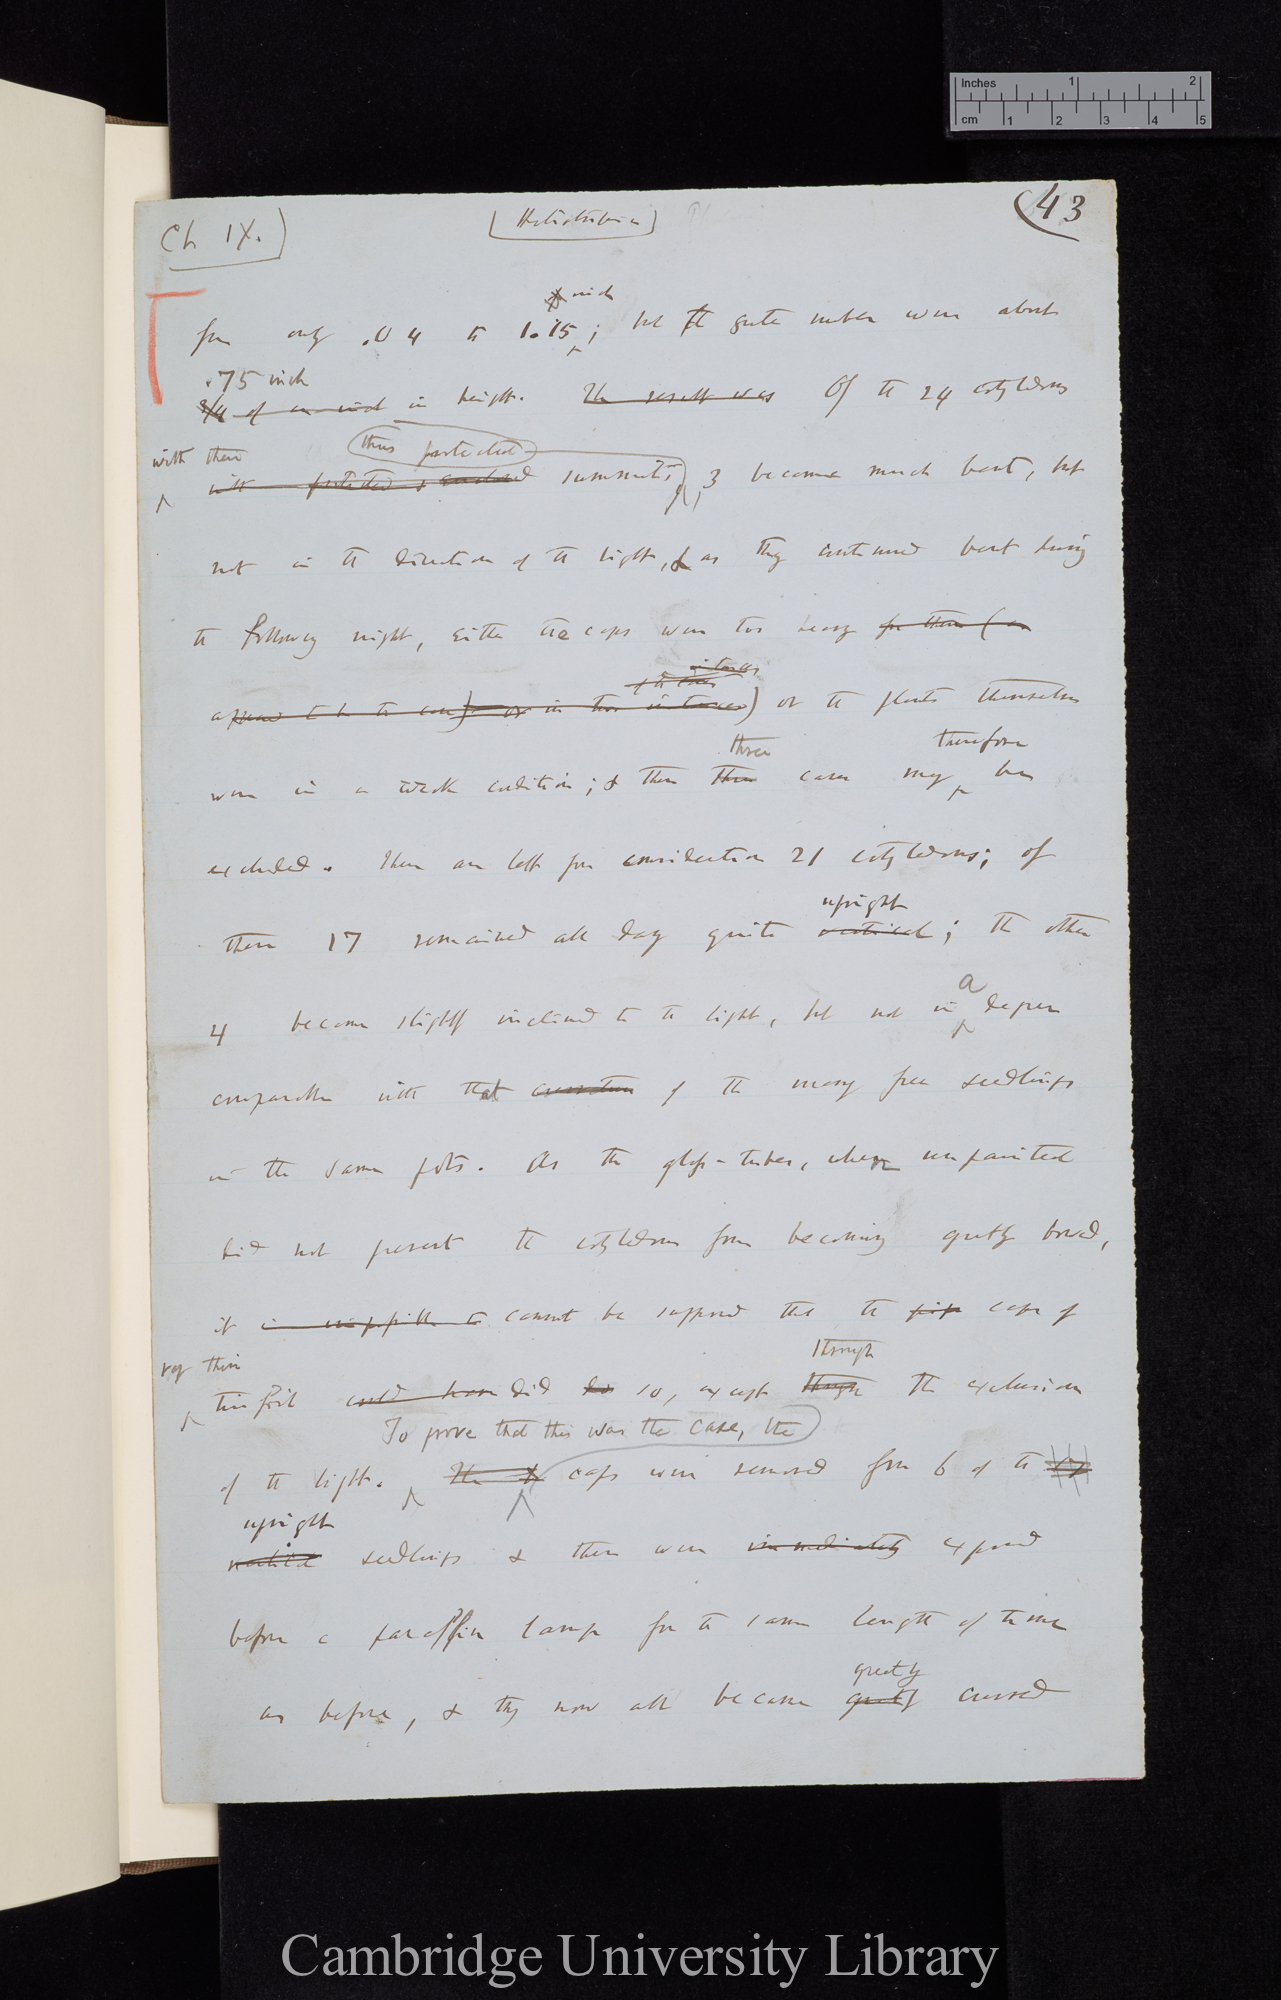 Inches 1 2
cm 1 2 3 4 5
Ch IX.
Heliotropism
43
inch
from only .04 to 1.15; but the greater number were about
.75 inch
3/4 of an inch in height. The result was Of the 24 cotyledons
with their thus protected
with protected & enclosed summits, 3 became much bent, but
not in the direction of the light, & as they continued bent during
the following night, either the caps were too heavy for them (as
instances
appears to be the case) or in two instances) or the plants themselves
three therefore
were in a weak condition; & these three cases may be
excluded. There are left for consideration 21 cotyledons; of
upright
these 17 remained all day quite vertical; the other
a
4 became slightly inclined to the light, but not in degree
comparable with that of the many free seedlings
in the same pots. As the glass-tubes, when unpainted
did not prevent the cotyledons from becoming greatly bowed,
it is impossible to cannot be supposed that the caps of
very thin
through
tin foil could have did do so, except through the exclusion
To prove that this was the case, the
of the light. The caps were removed from 6 of the 17
upright
vertical seedlings & these were immediately exposed
before a paraffin lamp for the same length of time
greatly
as before, & they now all became greatly curved
Cambridge University Library